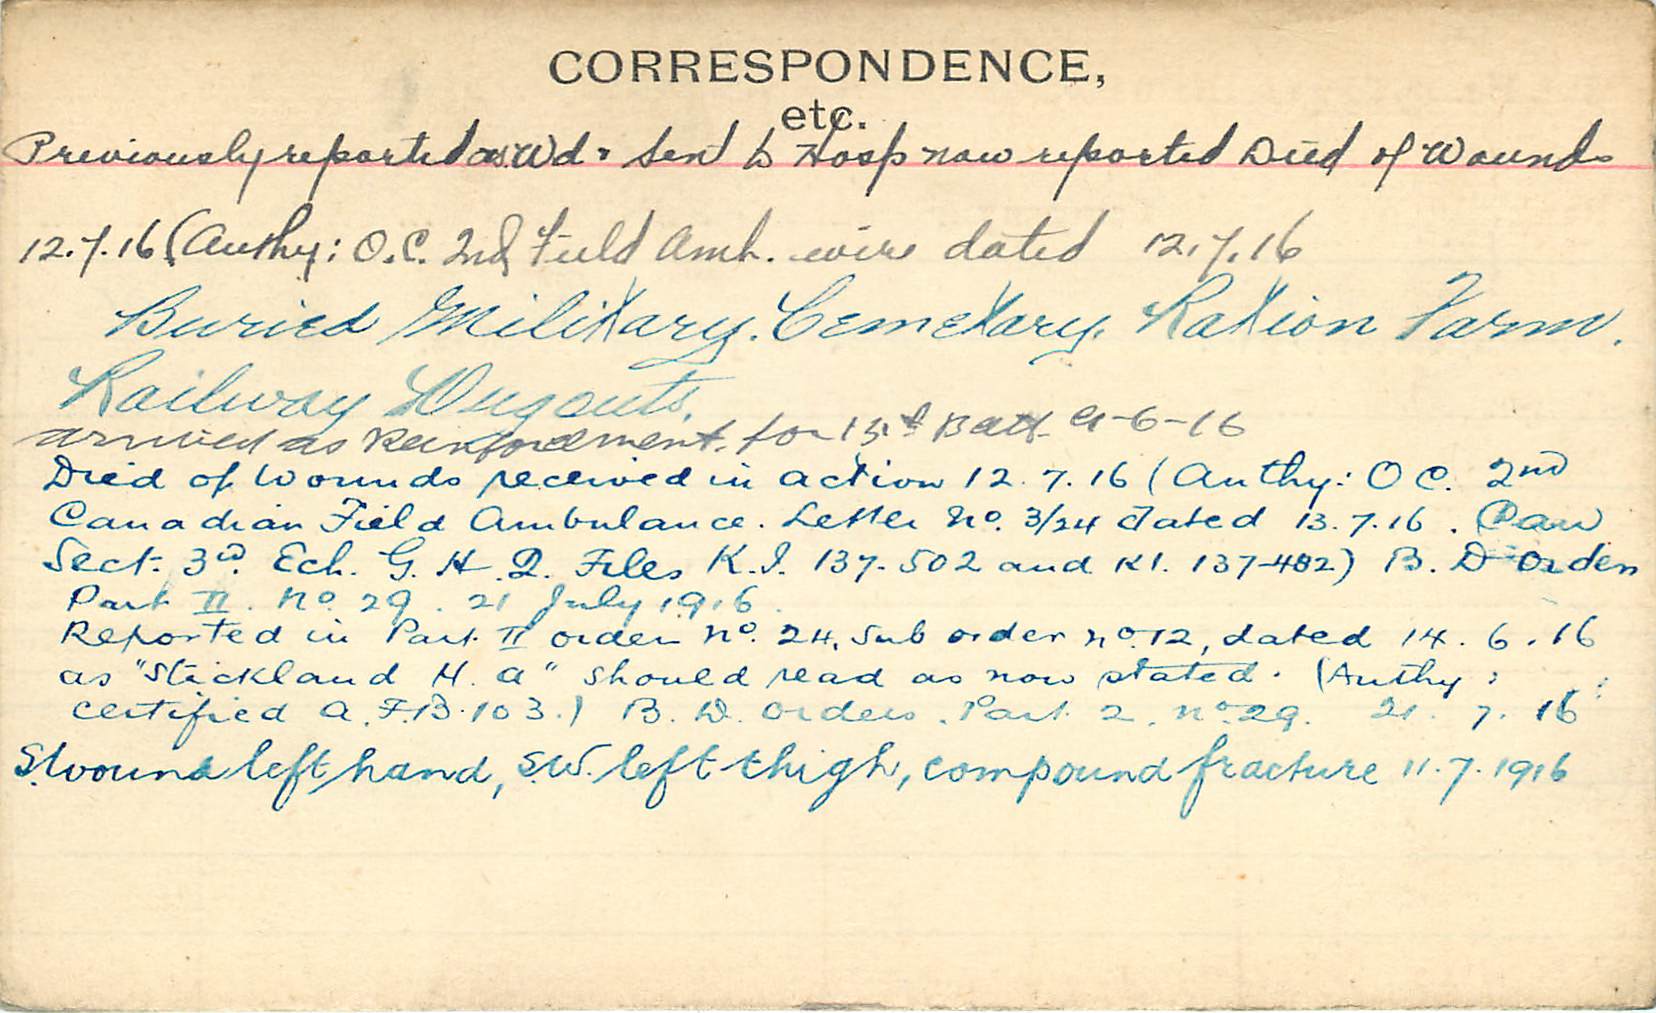 CORRESPONDENCE,
etc.
Previously reported as Wd. Sent to Hosp now reported Died of Wounds
12.7.16 (Authy: O.C. 2nd Field Amb. wire dated 12.7.16
Buried Military. Cemetary. Ration Farm.
Railway Dugouts.
arrived as Reinforcement. for Batt 9-6-16
Died of Wounds received in action 12.7.16 (Authy: O C. 2nd
Canadian Field Ambulance. Letter No. 3/24 dated 13.7.16. (Can
Sect. 3rd. Ech. G. H. Q. Files K.I. 137-502 and K1. 137-482) B. D Orders
Part II. No 29. 21 July 1916.
Reported in Part II order No. 24, Sub order no. 12, dated 14.6.16
as "Stickland H. A" should read as now stated. (Authy:
certified A.F.B.103.) B. D. Orders. Part 2. no 29. 21. 7. 16
S.wound left hand, S.W. left thigh, compound fracture 11.7.1916